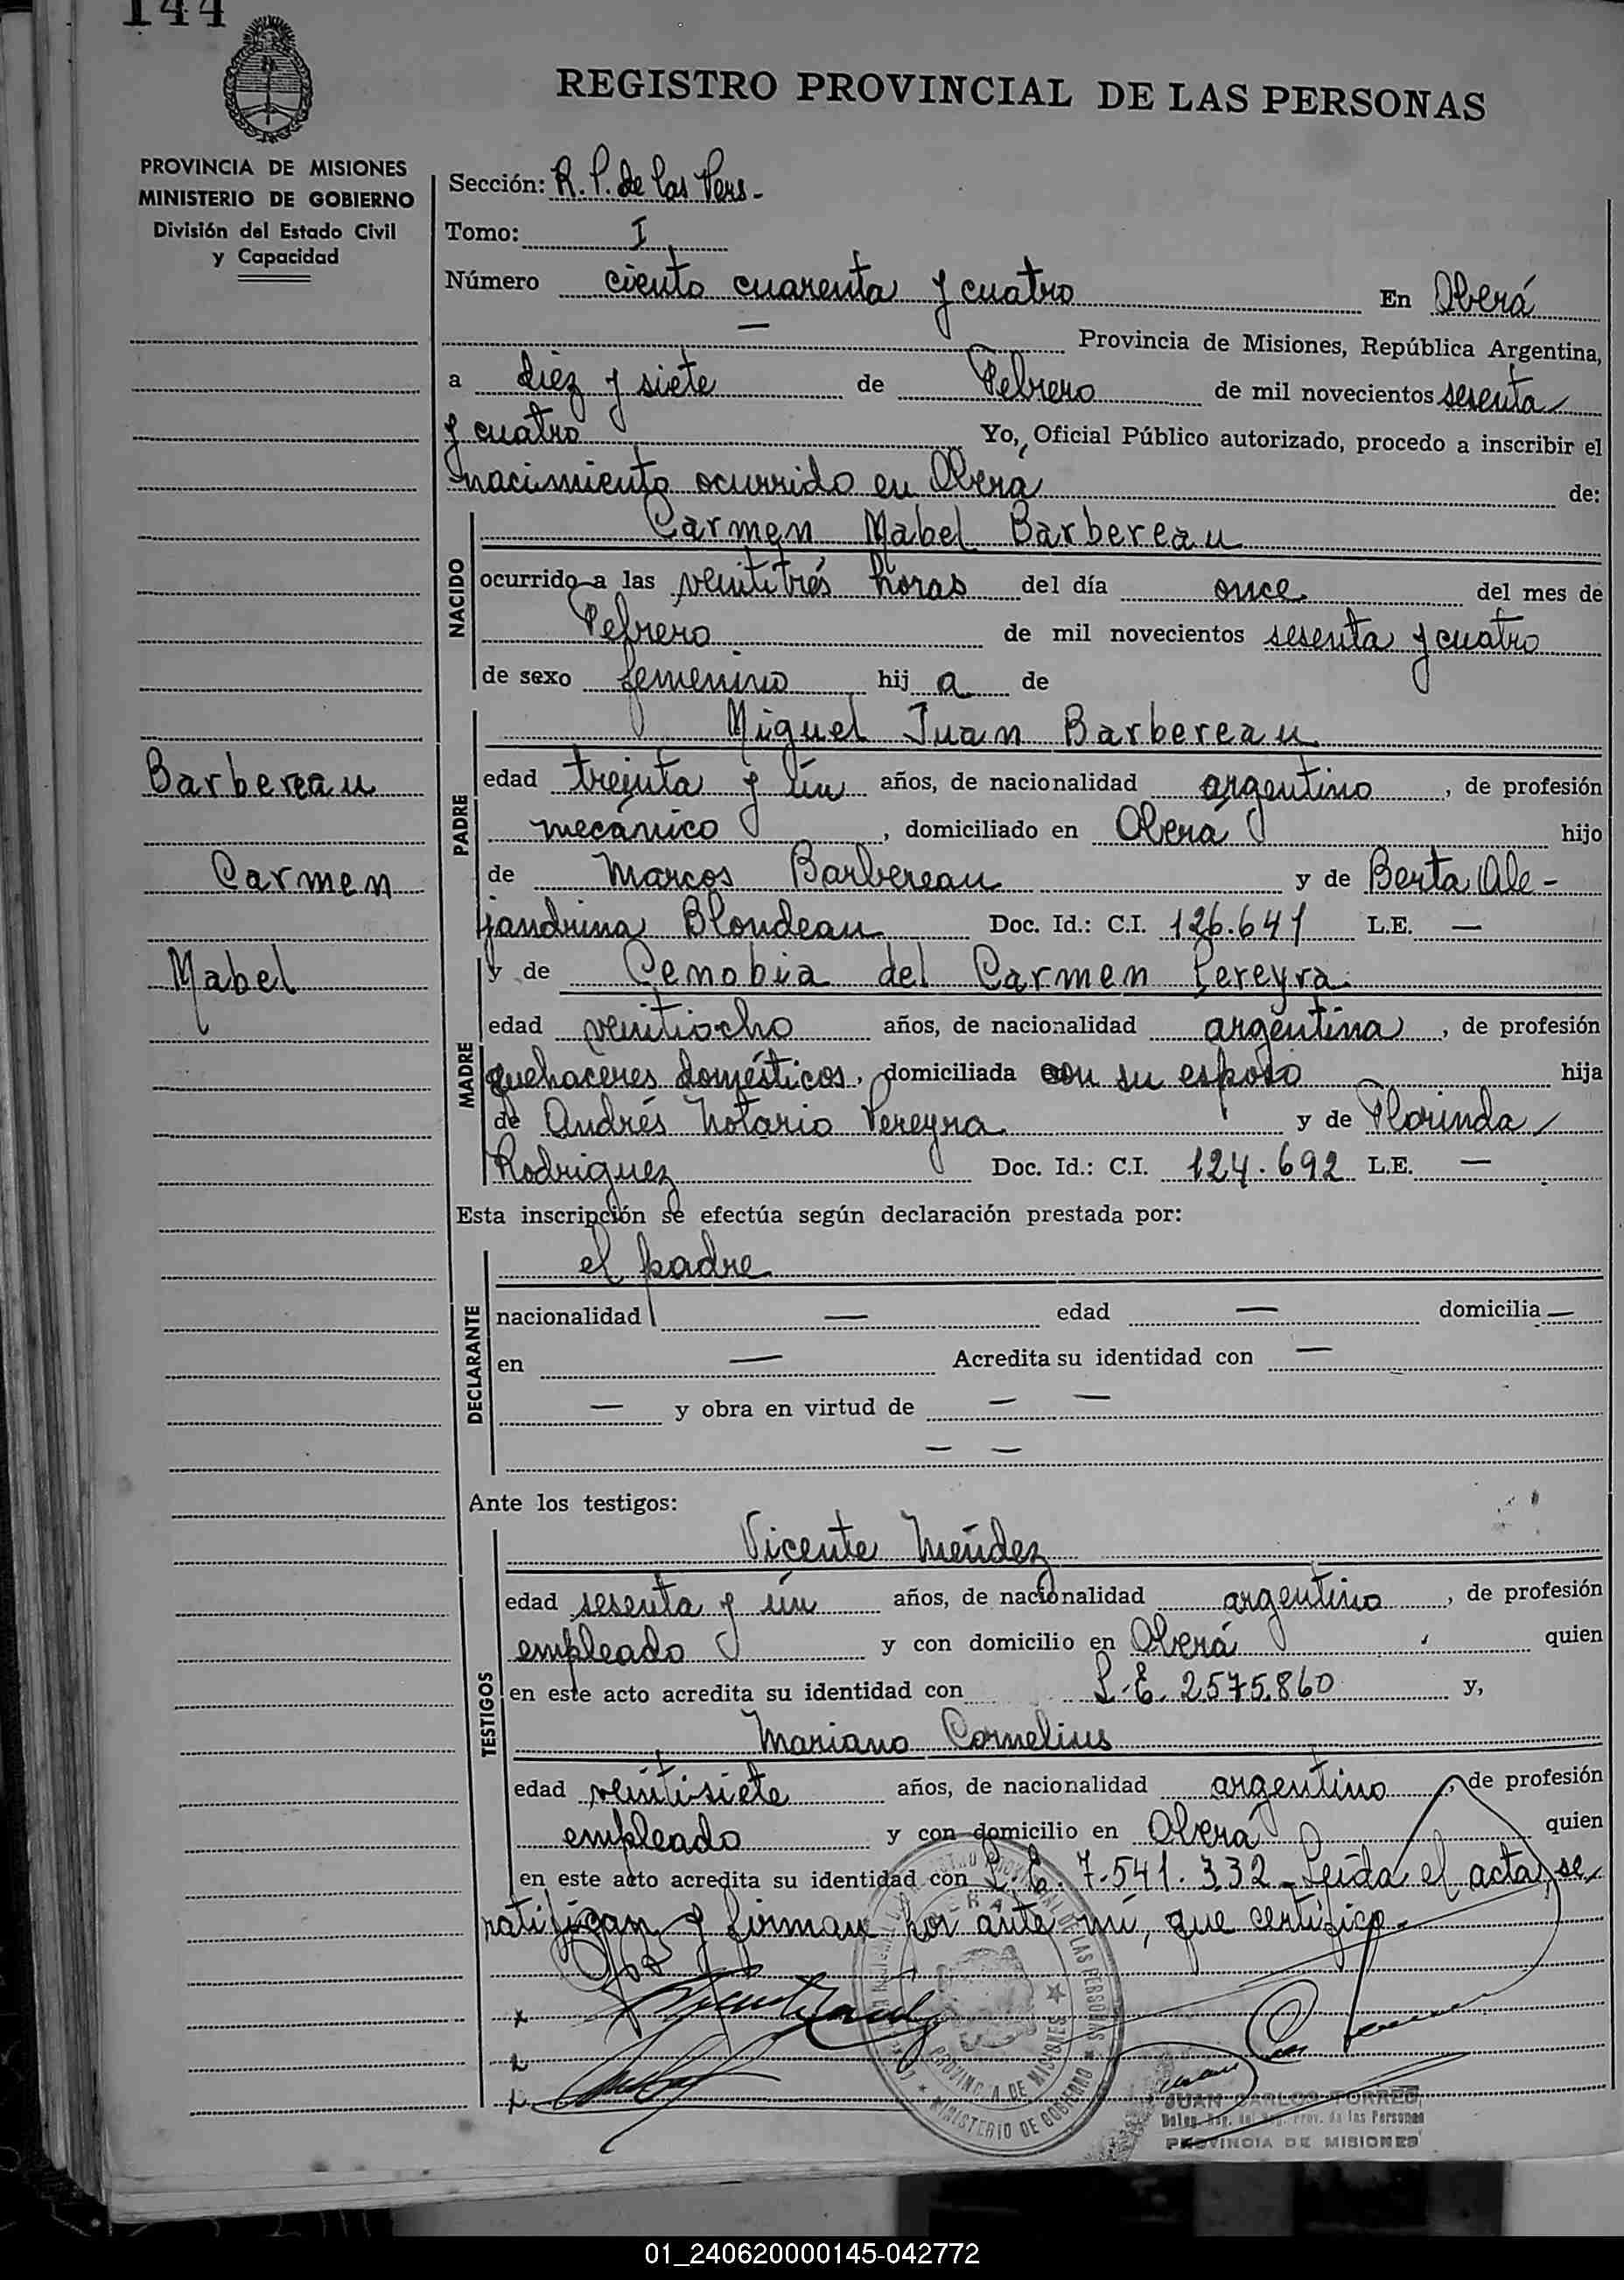 144
REGISTRO PROVINCIAL DE LAS PERSONAS
PROVINCIA DE MISIONES
MINISTERIO DE GOBIERNO
División del Estado Civil
y Capacidad
Sección: R. P. de las Pers-
Tomo: I
Número ciento cuarenta y cuatro En Oberá
— Provincia de Misiones, República Argentina,
a diez y siete de Febrero de mil novecientos sesenta
y cuatro Yo, Oficial Público autorizado, procedo a inscribir el
nacimiento ocurrido en Oberá de:
NACIDO
Carmen Mabel Barbereau
ocurrido a las veintitrés horas del día once del mes de
Febrero de mil novecientos sesenta y cuatro
de sexo femenino hij a de
PADRE
Miguel Juan Barbereau
edad treinta y ún años, de nacionalidad argentino, de profesión
mecánico, domiciliado en Oberá hijo
de Marcos Barbereau y de Berta Ale-
jandrina Blondeau Doc. Id.: C.I. 126.641 L.E. —
MADRE
y de Cenobia del Carmen Pereyra
edad veintiocho años, de nacionalidad argentina, de profesión
quehaceres domésticos, domiciliada con su esposo hija
de Andrés Notario Pereyra y de Florinda
Rodriguez Doc. Id.: C.I. 124.692 L.E. —
Barbereau
Carmen
Mabel
Esta inscripción se efectúa según declaración prestada por:
DECLARANTE
el padre
nacionalidad — edad — domicilia —
en — Acredita su identidad con —
— y obra en virtud de — —
— —
Ante los testigos:
TESTIGOS
Vicente Méndez
edad sesenta y ún años, de nacionalidad argentino, de profesión
empleado y con domicilio en Oberá quien
en este acto acredita su identidad con L.E. 2575.860 y,
Mariano Cornelius
edad veintisiete años, de nacionalidad argentino, de profesión
empleado y con domicilio en Oberá quien
en este acto acredita su identidad con L.E. 7.541.332 - Leída el acta, se
ratifican y firman por ante mí, que certifico.-
PROVINCIA DE MISIONES
MINISTERIO DE GOBIERNO
JUAN CARLOS TORRES
Prov. de las Personas
PROVINCIA DE MISIONES
01_240620000145-042772